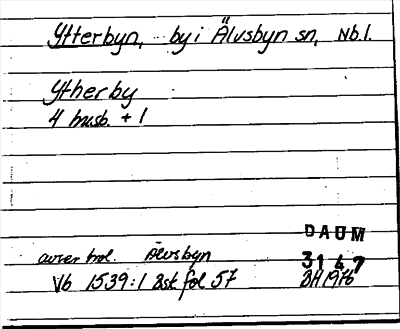 Ytterbyn, by i Älvsbyn sn, Nb.l.
Ytherby
4 husb. + 1
DAUM
avser trol. Älvsbyn
3147
Vb 1539:1 Bsk fol 57
BH 1976